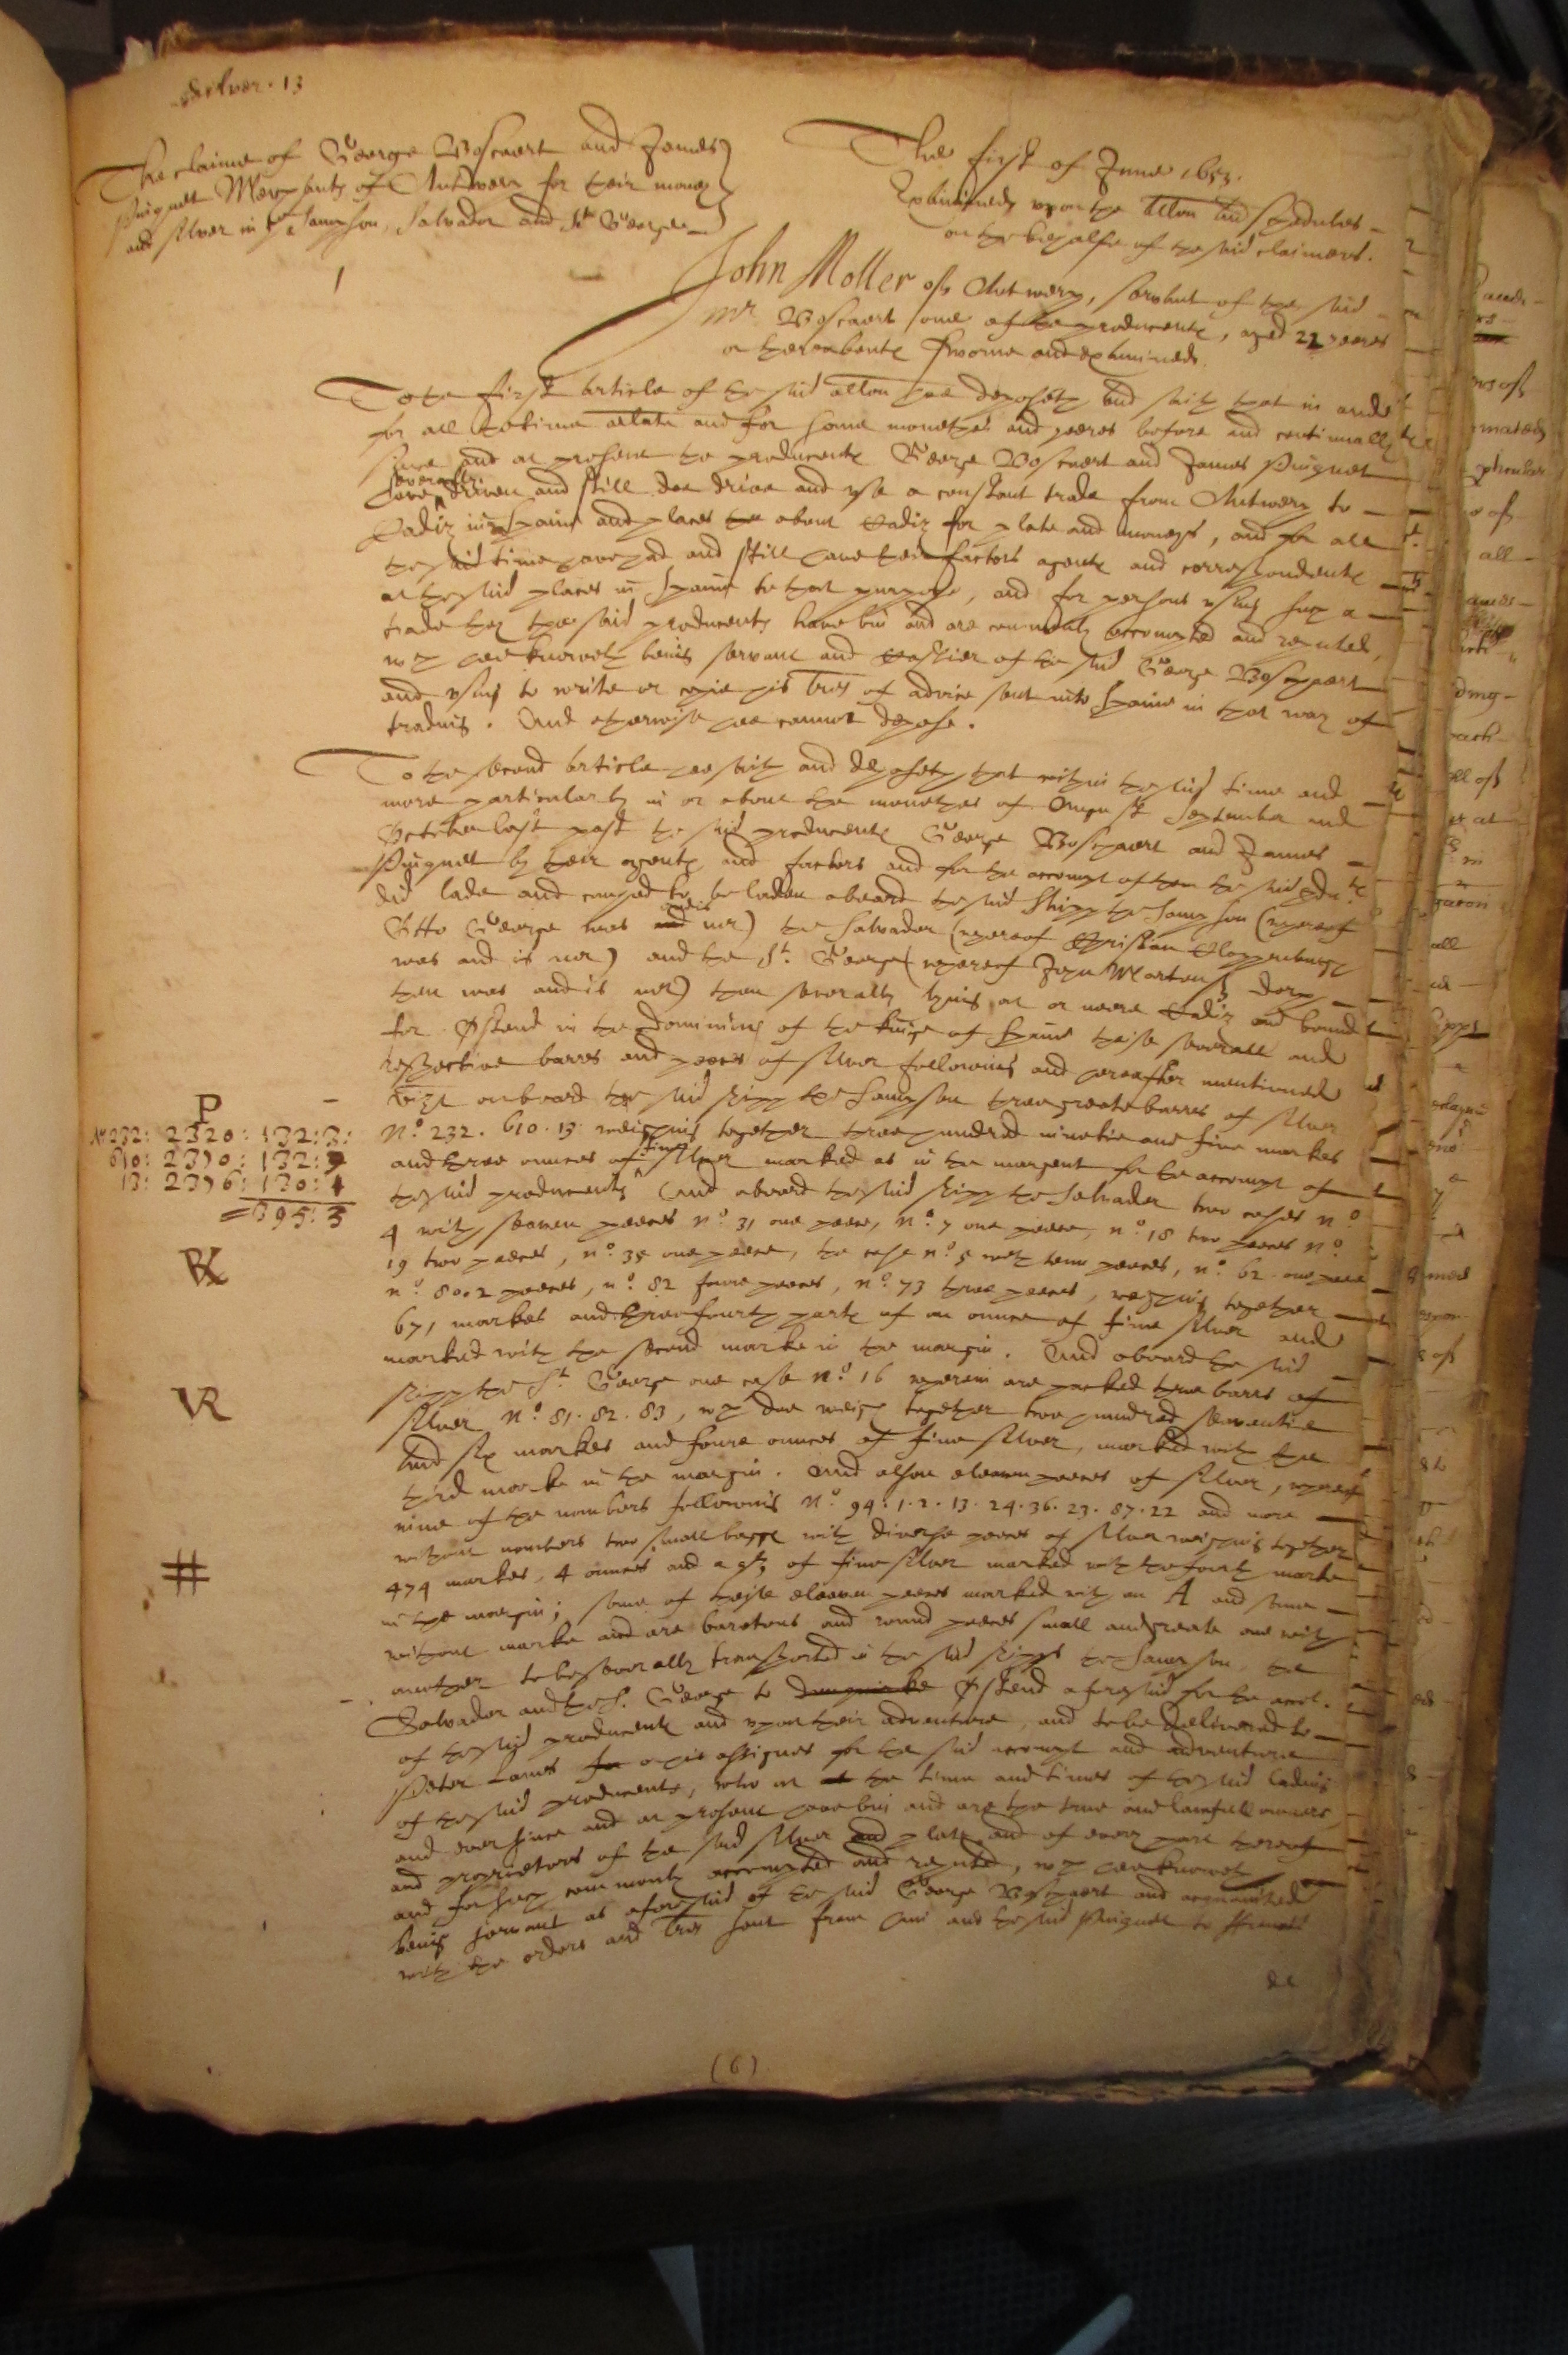 Silver. 13
The claime of George Boscaert and James
Puignet Merchants of Antwerp for their money
and silver in the Sampson, Salvador and St George
The first of June 1653.
Examined upon the allon and schedules
on the behalfe of the said claimers.
1
John Moller of Antwerp, servant of the said
mr Boscaert one of the producents, aged 22 yeares
or thereabouts sworne and examined.
To the first article of the said allon hee deposeth and saith that in and
for all the time arlate and for some moneths and yeares before and continually
since and at present the producents George Boscaert and James Puignet
severally
have driven and still doe drive and use a constant trade from Antwerp to
Cadiz in Spaine and places the about Cadiz for plate and moneys, and for all
the said time have had and still have their factors agents and correspondents
at the said places in Spaine to that purpose, and for persons using such a
trade they the said producents have bin and are commonly accompted and reputed,
wch hee knoweth being servant and cashier of the said George Boschaert
and using to write or copie his lres of advice sent into Spaine in that way of
trading. And otherwise hee cannot depose.
To the second article hee saith and deposeth that within the said time and
more particularly in or about the moneths of August September and
October last past the said producents George Boschaert and James
Puignet by their agents and factors and for the accompt of them the said pdu.ts
did lade and caused to be laden aboard the said shipp the Sampson (whereof
and is
Otto George was and mr) the Salvador (whereof Christian Cloppenburgh
was and is mr) and the St. George (whereof John Martens Dorp
then was and is mr) then severally lying at or neere Cadiz and bound
for Ostend in the dominions of the king of Spaine theise severall and
respective barres and peeces of silver following and hereafter mentioned
vizt on board the said shipp the Sampson three greate barres of silver
No. 232. 610. 13 weighing together three hundred ninetie and five markes
fine
and three ounces of silver marked as in the margent for the accompt of
the said producents And aboard the said shipp the Salvador two cases no
4 with seaven peeces no. 31 one peece, no. 7 one peece, no. 18 two peeces no.
19 two peeces, no. 35 one peece, the case no. 5 with tenn peeces, no. 62 one peece
no. 80 2 peeces, no. 82 foure peeces, no. 73 three peeces, weighing together
671 markes and three fourth parts of an ounce of fine silver and
marked with the second marke in the margin. And aboard the said
shipp the St. George one case No. 16 wherein are packed three barres of
silver No. 81. 82. 83, wch doe weigh together two hundred seventie
and six markes and foure ounces of fine silver, marked with the
third marke in the margin. And alsoe eleaven peeces of silver, whereof
nine of the numbers following No. 94. 1. 2. 13. 24. 36. 23. 87. 22 and more
without numbers two small baggs with diverse peeces of silver weighing together
474 markes, 4 ounces and a qtr of fine silver marked with the fourth marke
in the margin; some of theise eleaven peeces marked with an A and some
without marke and are baretons and round peeces small and greate one with
another to be severally transported in the said shipps the Sampson, the
Salvador and the St. George to Dunquirke Ostend aforesaid for the accot.
of the said producents and upon their adventure, and to be delivered to
Peter Lanes for or his assignes for the said accompt and adventure
of the said producents, who at the time and times of the said lading
and ever since and at present have bin and are the true and lawfull owners
and proprietors of the said silver and plate and of every part thereof
and for such commonly accompted and reputed, wch hee knoweth
being servant as aforesaid of the said George Boschaert and acquainted
with the orders and lres sent from him and the said Puignet to
de
P
No 232: 2320: 132: 3:
610: 2370: 132:
13: 2376: 130:
395: 3
VR
(6)